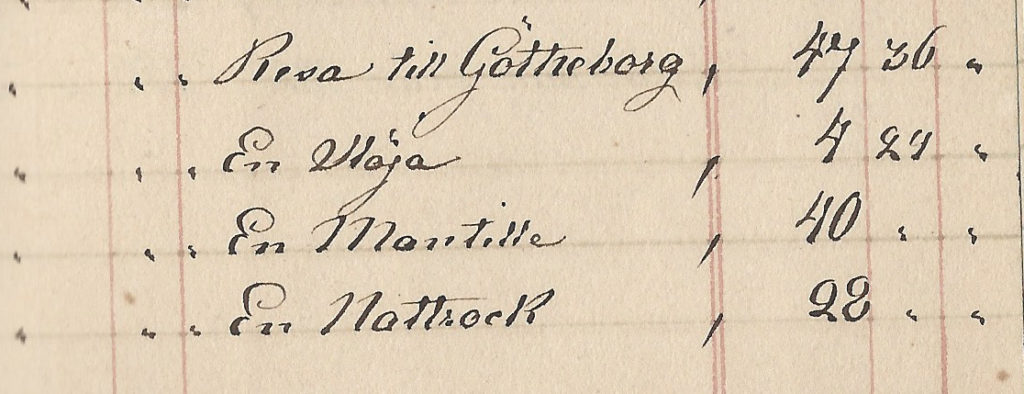 " " " Resa till Götheborg , 47 36 "
" " " En Slöja , 4 24 "
" " " En Mantille , 40 " "
" " " En Nattrock , 28 " "